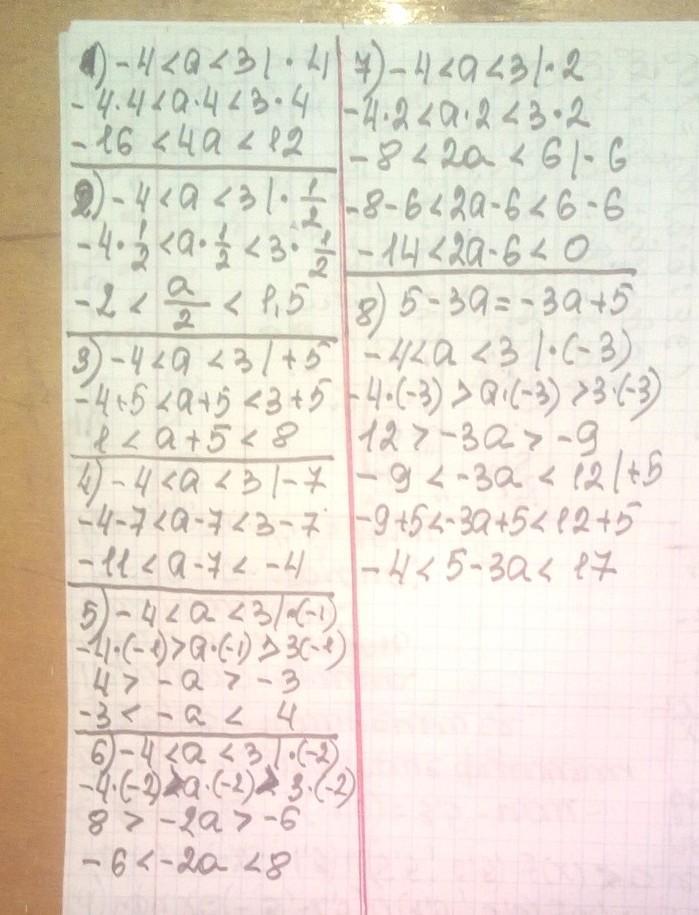 1) -4 < a < 3 | · 4
-4·4 < a·4 < 3·4
-16 < 4a < 12
2) -4 < a < 3 | · 1/2
-4·1/2 < a·1/2 < 3·1/2
-2 < a/2 < 1,5
3) -4 < a < 3 | +5
-4+5 < a+5 < 3+5
1 < a+5 < 8
4) -4 < a < 3 | -7
-4-7 < a-7 < 3-7
-11 < a-7 < -4
5) -4 < a < 3 | ·(-1)
-4·(-1) > a·(-1) > 3(-1)
4 > -a > -3
-3 < -a < 4
6) -4 < a < 3 | ·(-2)
-4·(-2) > a·(-2) > 3·(-2)
8 > -2a > -6
-6 < -2a < 8
7) -4 < a < 3 | · 2
-4·2 < a·2 < 3·2
-8 < 2a < 6 | - 6
-8-6 < 2a-6 < 6-6
-14 < 2a-6 < 0
8) 5-3a = -3a+5
-4 < a < 3 | ·(-3)
-4·(-3) > a·(-3) > 3·(-3)
12 > -3a > -9
-9 < -3a < 12 | +5
-9+5 < -3a+5 < 12+5
-4 < 5-3a < 17